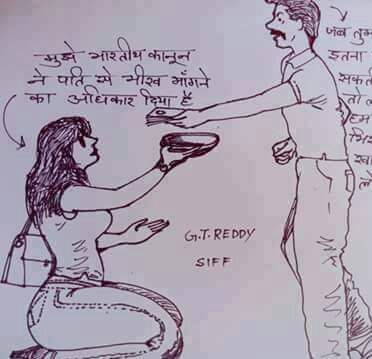 मुझे भारतीय कानून
ने पति से भीख माँगने
का अधिकार दिया है
जब तुम
इतना
सकती
हम
G.T.REDDY
SIFF